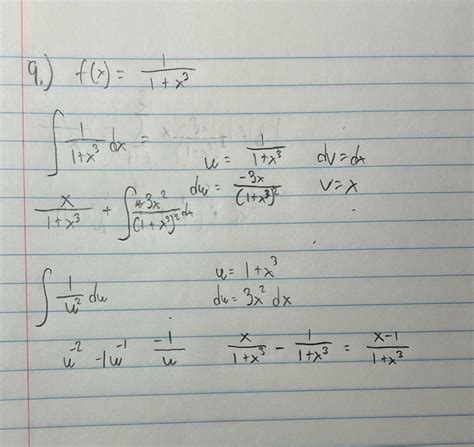 9.) f(x) = 1/(1+x³)
∫ 1/(1+x³) dx =
u = 1/(1+x³) dv = dx
x/(1+x³) + ∫ 3x²/(1+x³)² dx du = -3x/(1+x³)² v = x
∫ 1/u² du u = 1+x³
du = 3x² dx
u⁻² -1u⁻¹ -1/u x/(1+x³) - 1/(1+x³) = x-1/(1+x³)